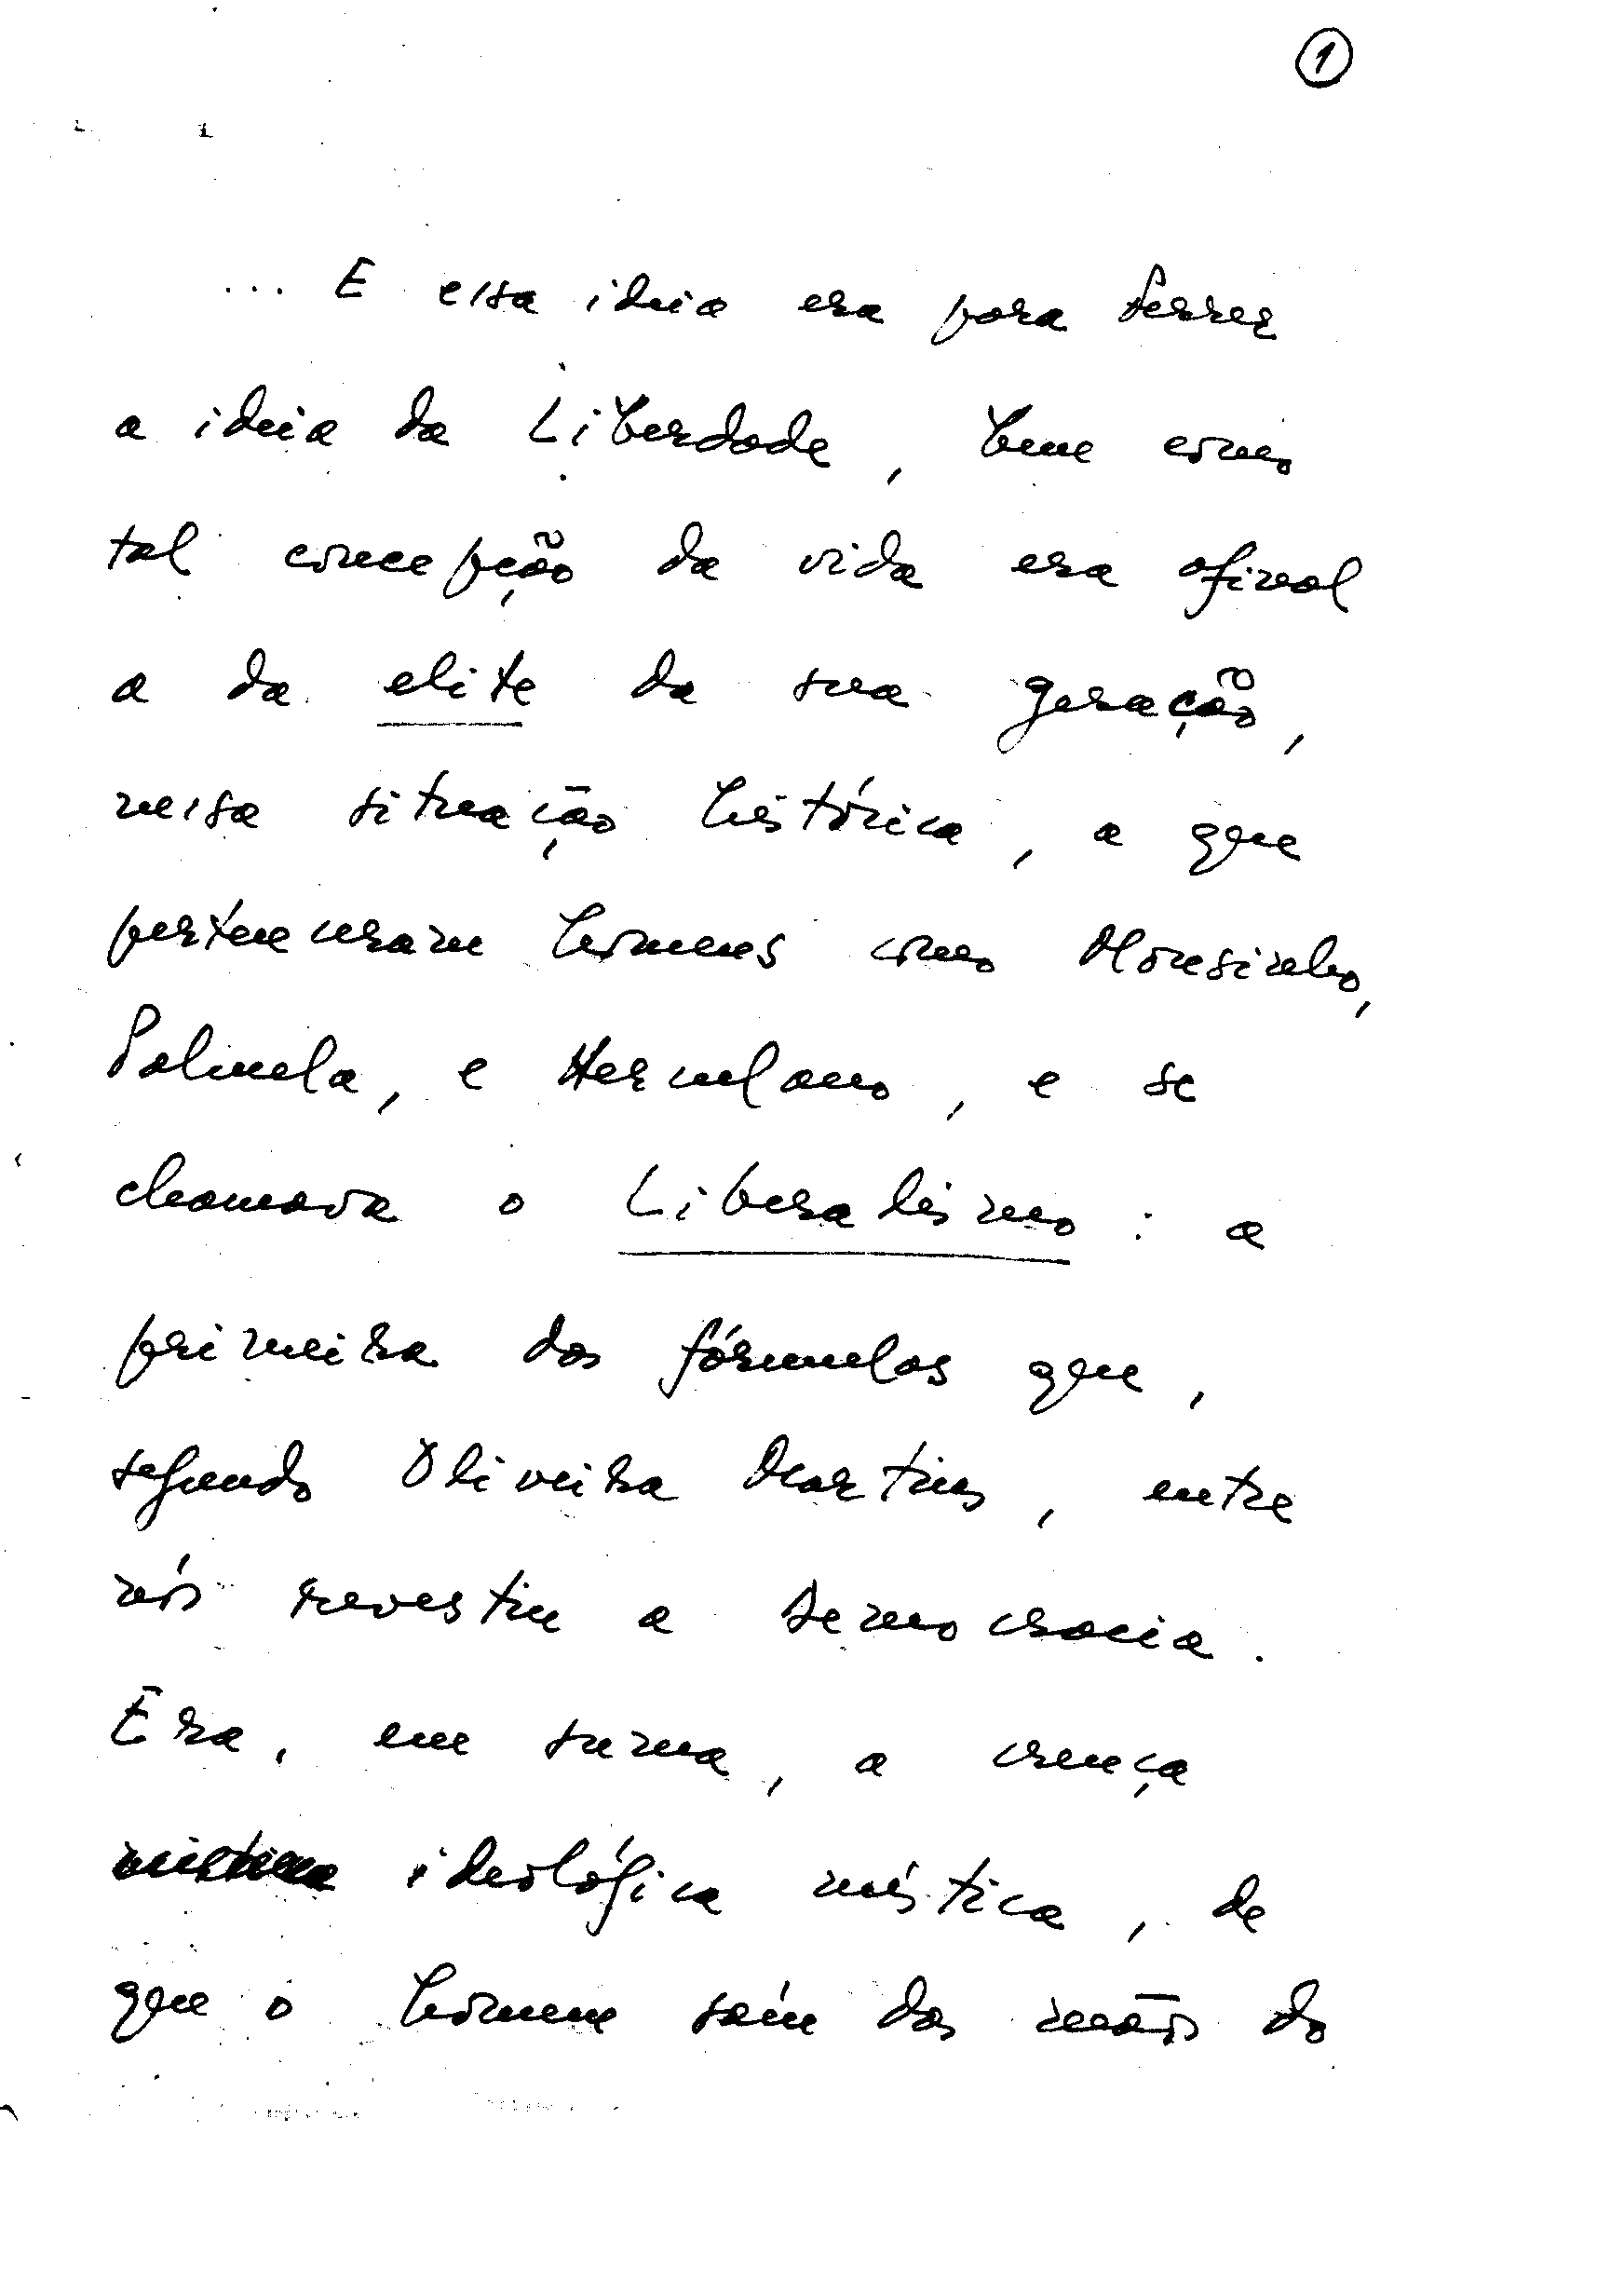 1
... E essa ideia era para Ferrer
a ideia da Liberdade, bem como
tal concepção da vida era afinal
a da elite da sua geração,
nessa situação histórica, a que
pertenceram homens como Mousinho,
Palmela, e Herculano, e se
chamava o Liberalismo: a
primeira das fórmulas que,
segundo Oliveira Martins, entre
nós revestiu a Democracia.
Era, em suma, a crença
ideológica mística, de
que o homem saíu das mãos do